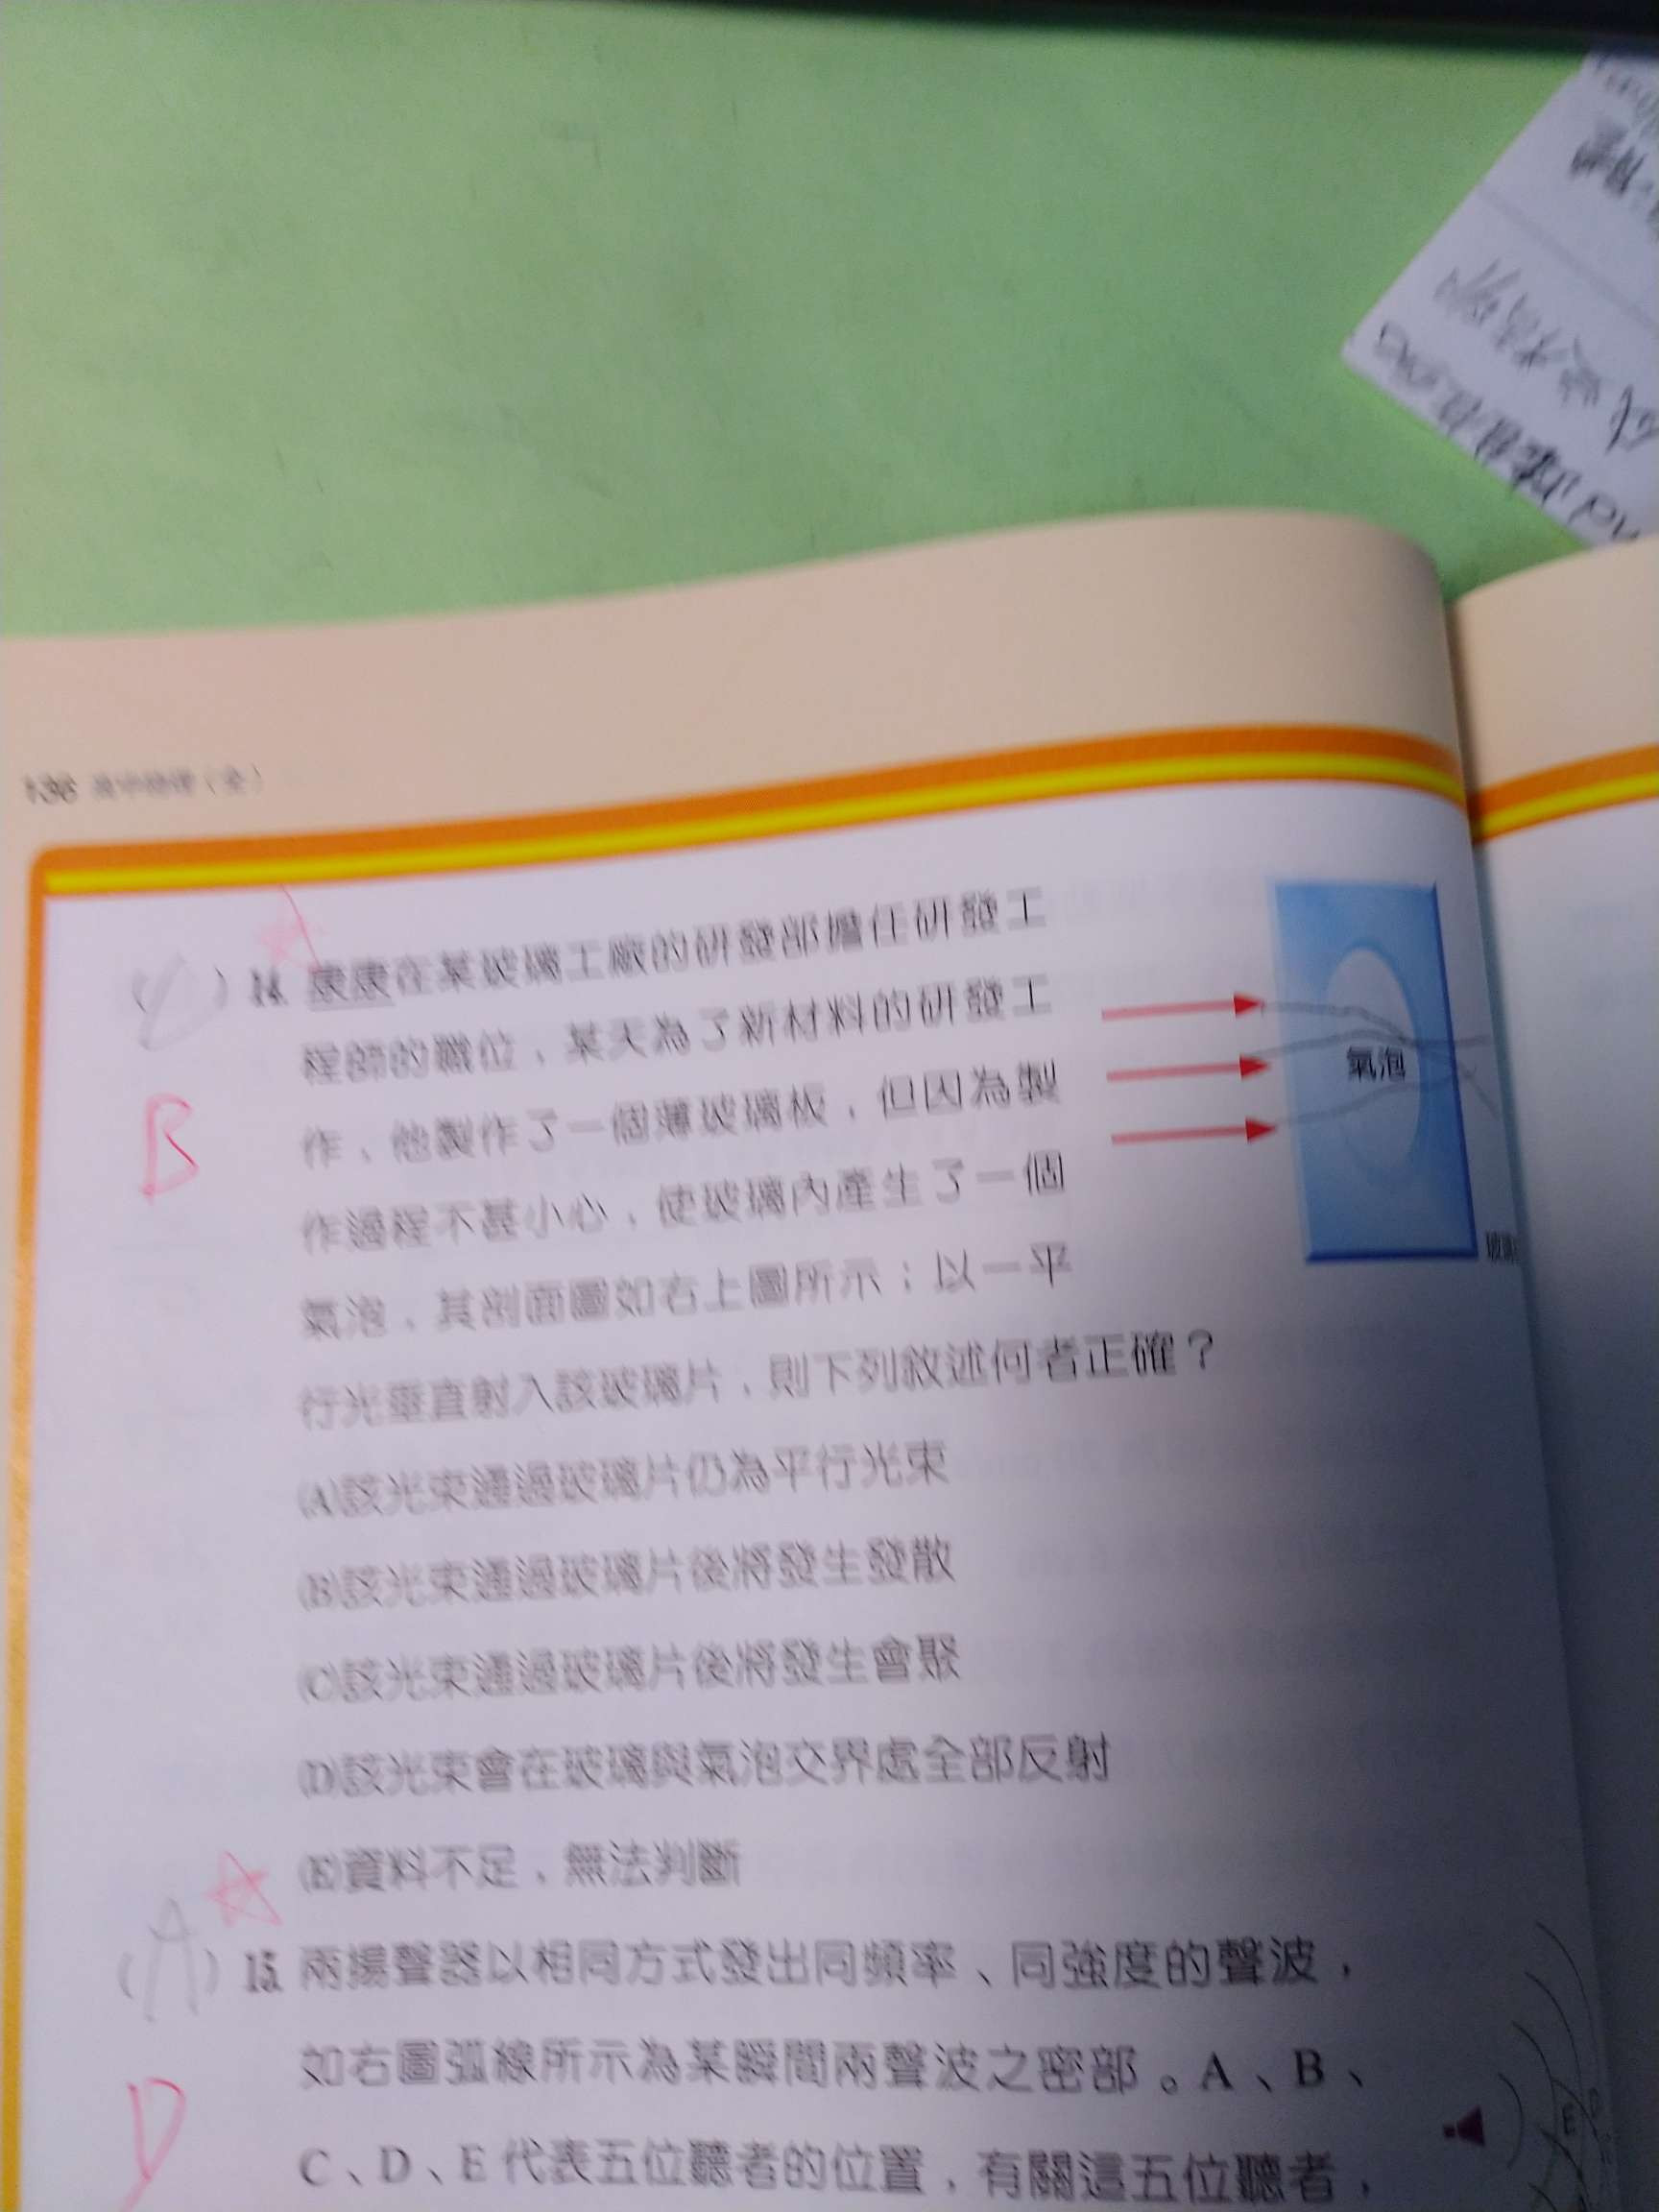 136 高中物理（全）
14. 康康在某玻璃工廠的研發部擔任研發工
程師的職位，某天為了新材料的研發工
作，他製作了一個薄玻璃板，但因為製
作過程不甚小心，使玻璃內產生了一個
氣泡，其剖面圖如右上圖所示；以一平
行光垂直射入該玻璃片，則下列敘述何者正確？
氣泡
玻璃
B
(A)該光束通過玻璃片仍為平行光束
(B)該光束通過玻璃片後將發生發散
(C)該光束通過玻璃片後將發生會聚
(D)該光束會在玻璃與氣泡交界處全部反射
(E)資料不足，無法判斷
(A) 15. 兩揚聲器以相同方式發出同頻率、同強度的聲波，
如右圖弧線所示為某瞬間兩聲波之密部。A、B、
C、D、E 代表五位聽者的位置，有關這五位聽者，
D
E